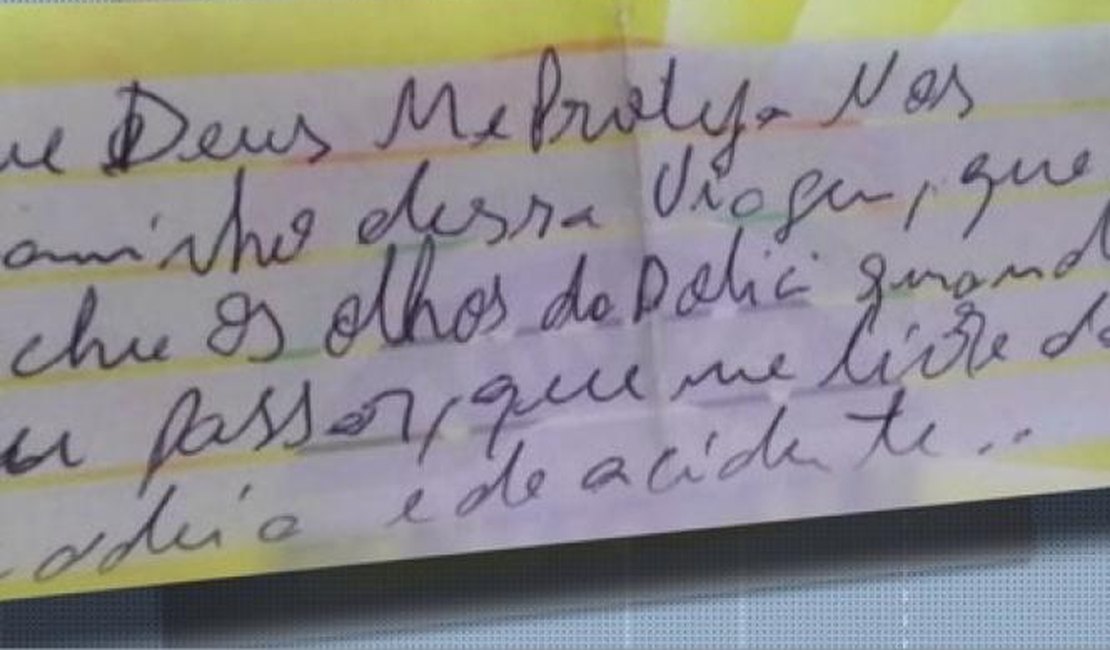 ue Deus Me Proteja Nos
aminho dessa Viagem, que
eche os olhos da Polici quand
eu passar, que me livre da
adeia e de acidente..